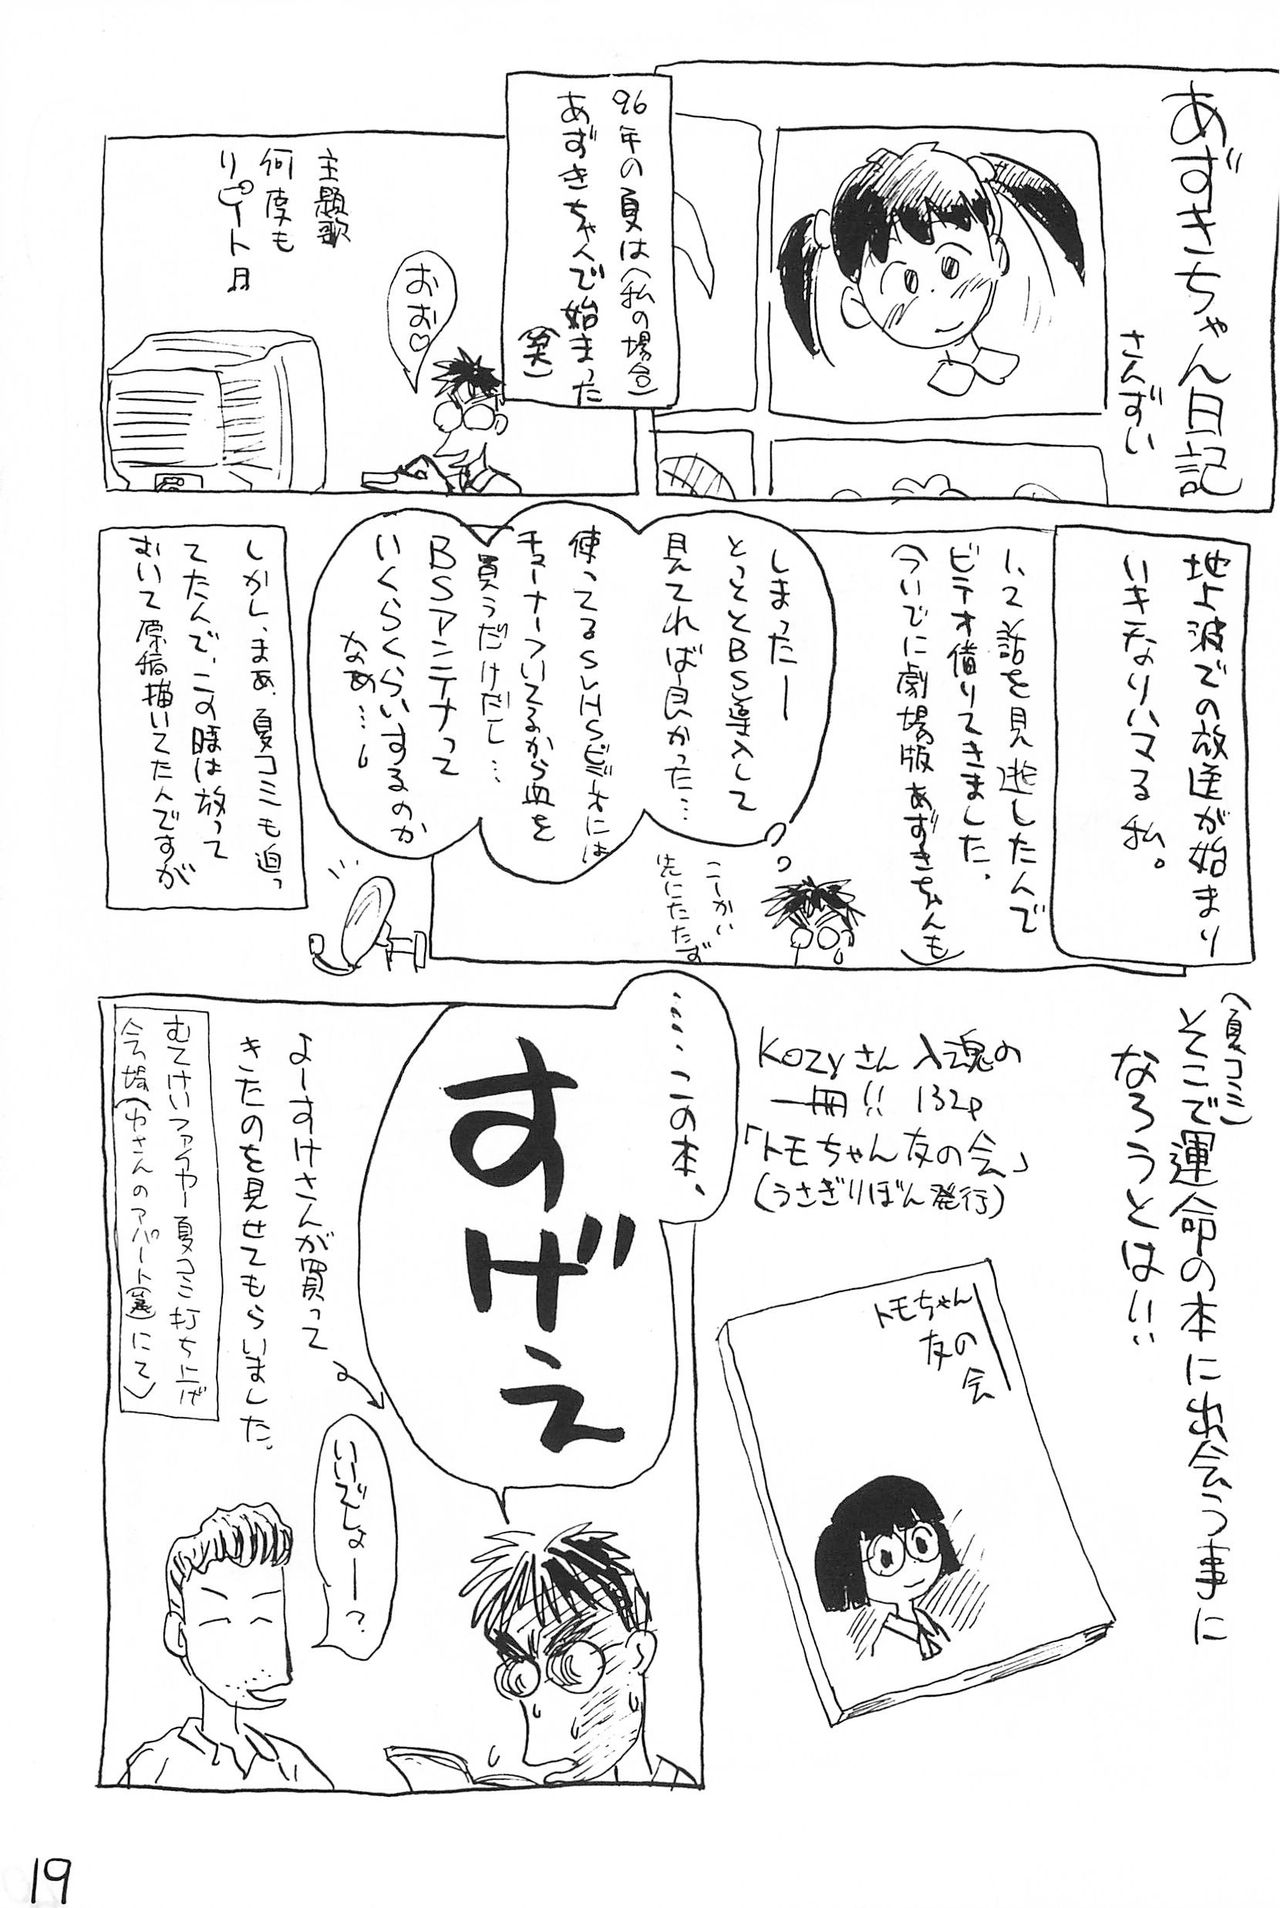 あずきちゃん日記
さんずい
96年の夏は(私の場合)
あずきちゃんで始まった
(笑)
おお♡
主題歌
何度も
リピート
地上波での放送が始まり
いきなりハマる私。
1、2話を見逃したんで
ビデオ借りてきました。
(ついでに劇場版あずきちゃんも)
しまったー
とっととBS導入して
見てれば良かった…
使ってるSVHSビデオには
チューナーついてるから皿を
買うだけだし…
BSアンテナって
いくらくらいするのか
なぁ…
こーかい
先にたたず
しかし、まぁ、夏コミも迫っ
てたんで、この時は放って
おいて原稿描いてたんですが
(夏コミ)
そこで運命の本に出会う事に
なろうとは!!
Kozyさん入魂の
一冊!! 132p
「トモちゃん友の会」
(うさぎりぼん発行)
トモちゃん
友の会
……この本、
すげえ
よーすけさんが買って
きたのを見せてもらいました。
むてけいファイヤー夏コミ打ち上げ
会場(Yさんのアパート(笑)にて)
いいでしょー?
19